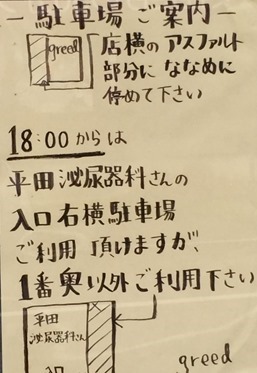 －駐車場ご案内－
greed
店横のアスファルト
部分にななめに
停めて下さい
18:00からは
平田泌尿器科さんの
入口右横駐車場
ご利用頂けますが、
1番奥以外ご利用下さい
平田
泌尿器科さん
入口
greed